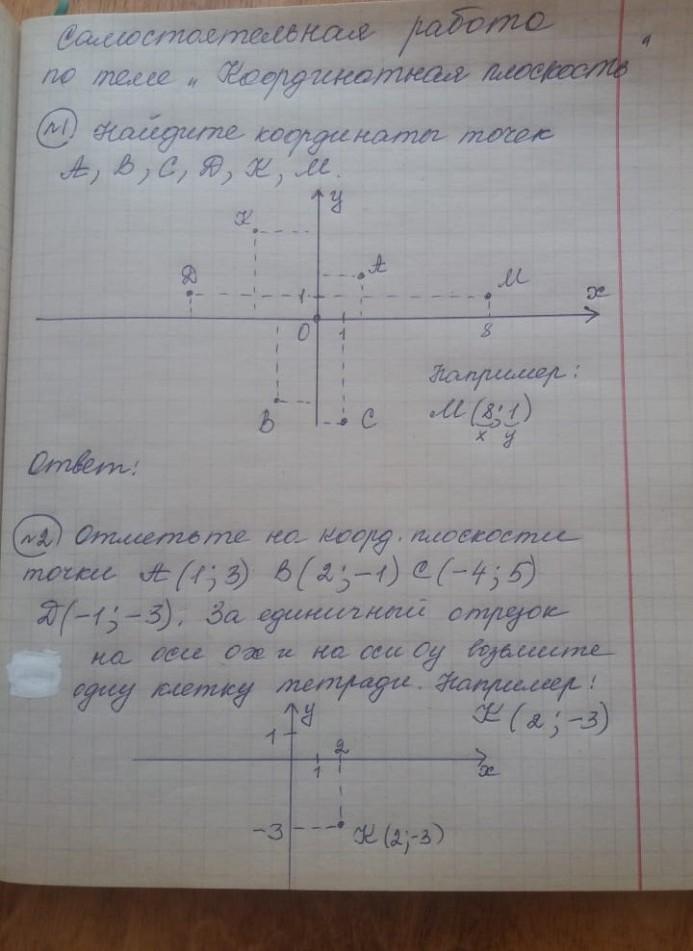 Самостоятельная работа
по теме „Координатная плоскость"
№1 Найдите координаты точек
А, В, С, Д, К, М.
у
К
А
Д
М
1
х
0
1
8
В
С
Например:
М(8; 1)
х у
Ответ:
№2 Отметьте на коорд. плоскости
точки А(1; 3) В(2; -1) С(-4; 5)
Д(-1; -3). За единичный отрезок
на оси ох и на оси оу возьмите
одну клетку тетради. Например:
К(2; -3)
у
1
2
1
х
-3
К(2; -3)